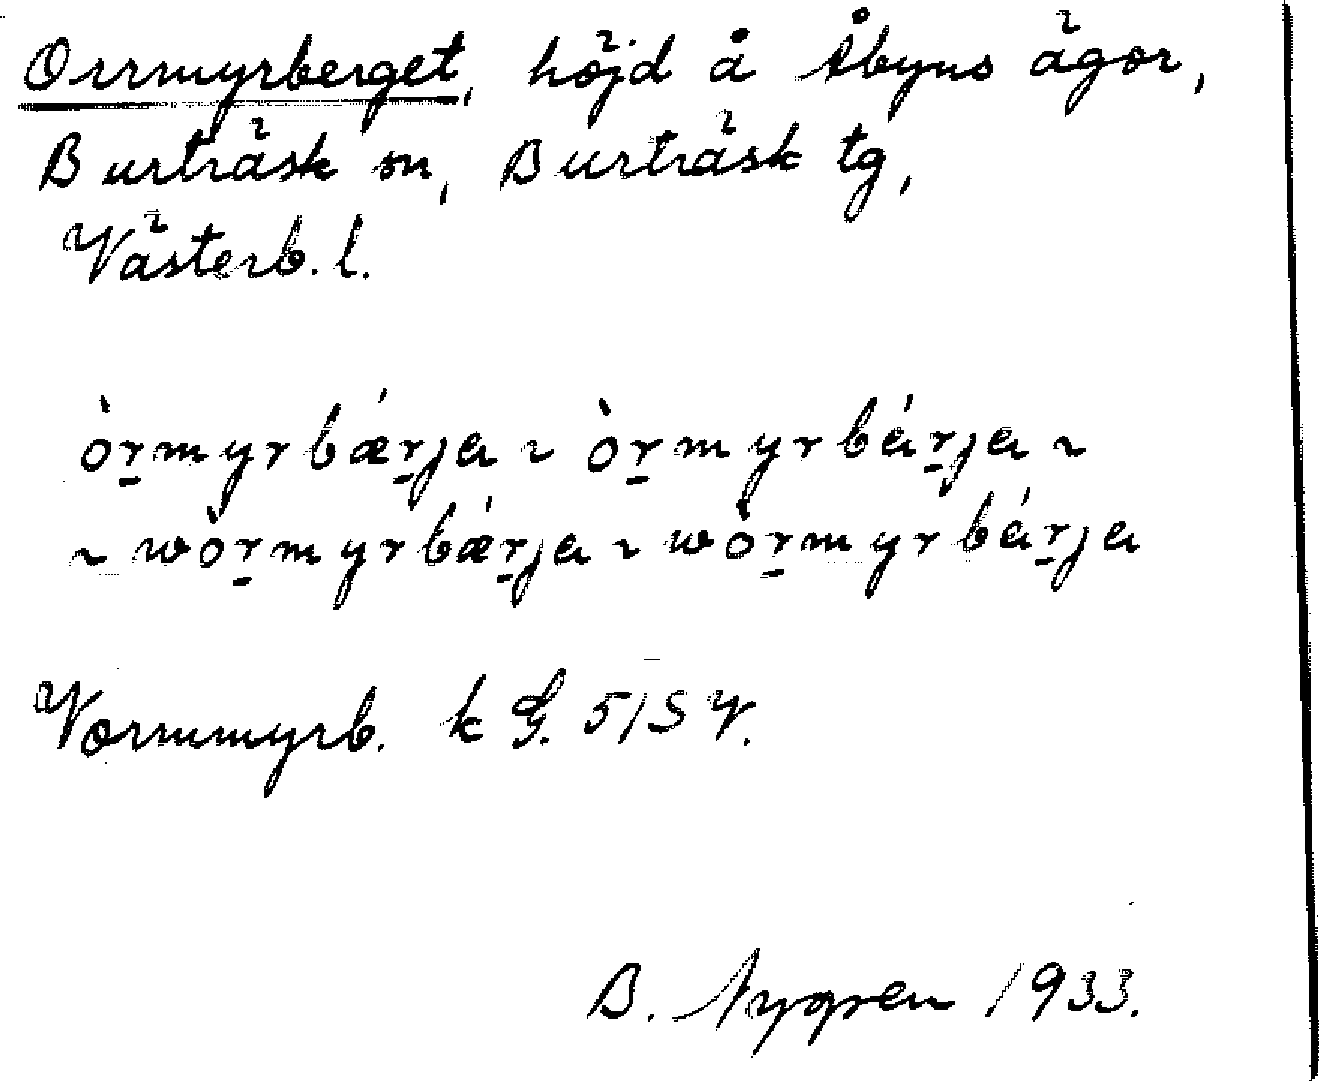 Orrmyrberget, höjd å Åbyns ägor,
Burträsk sn, Burträsk tg,
Västerb. l.
òr̠myrbǽr̠ja ~ òr̠myrbár̠ja ~
~ wòr̠myrbǽr̠ja ~ wòr̠myrbár̠ja
Vormmyrb. k G. 51 S V.
B. Nygren 1933.